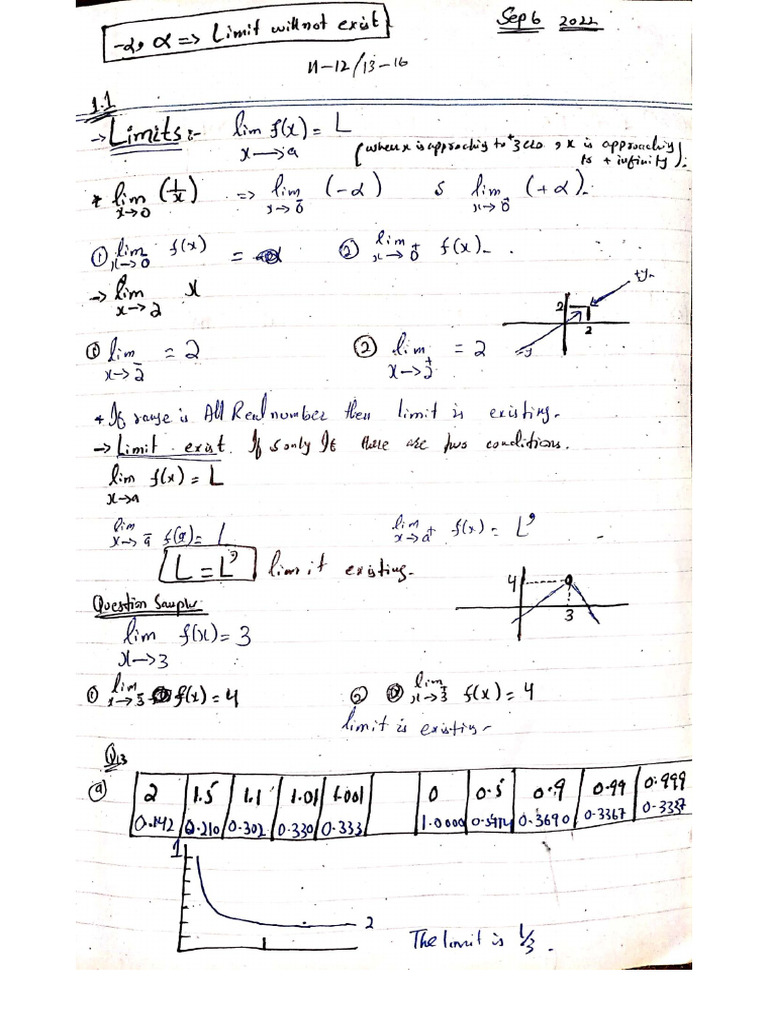 -α, α => Limit will not exist
Sep 6 2022
11-12/13-16
1.1
→ Limits:- lim f(x) = L
x→a
(when x is approaching to +zero, x is approaching to + infinity).
* lim (1/x) => lim (-α) & lim (+α)-
x→0 x→0⁻ x→0⁺
① lim f(x) = -α ② lim f(x)-
x→0⁻ x→0⁺
→ lim x
x→2
2
2
① lim = 2 ② lim = 2
x→2⁻ x→2⁺
* If range is All Real number then limit is existing-
→ Limit exist. If & only If there are two conditions.
lim f(x) = L
x→a
lim f(a) = L lim f(x) = L'
x→a⁻ x→a⁺
L = L' limit existing-
4
3
Question Sample:
lim f(x) = 3
x→3
① lim f(x) = 4 ② lim f(x) = 4
x→3⁻ x→3
limit is existing-
Q13
ⓐ 2 1.5 1.1 1.01 1.001 0 0.5 0.9 0.99 0.999
0.142 0.210 0.302 0.330 0.333 1.0000 0.3690 0.3367 0.3337
1
2
The limit is 1/3.